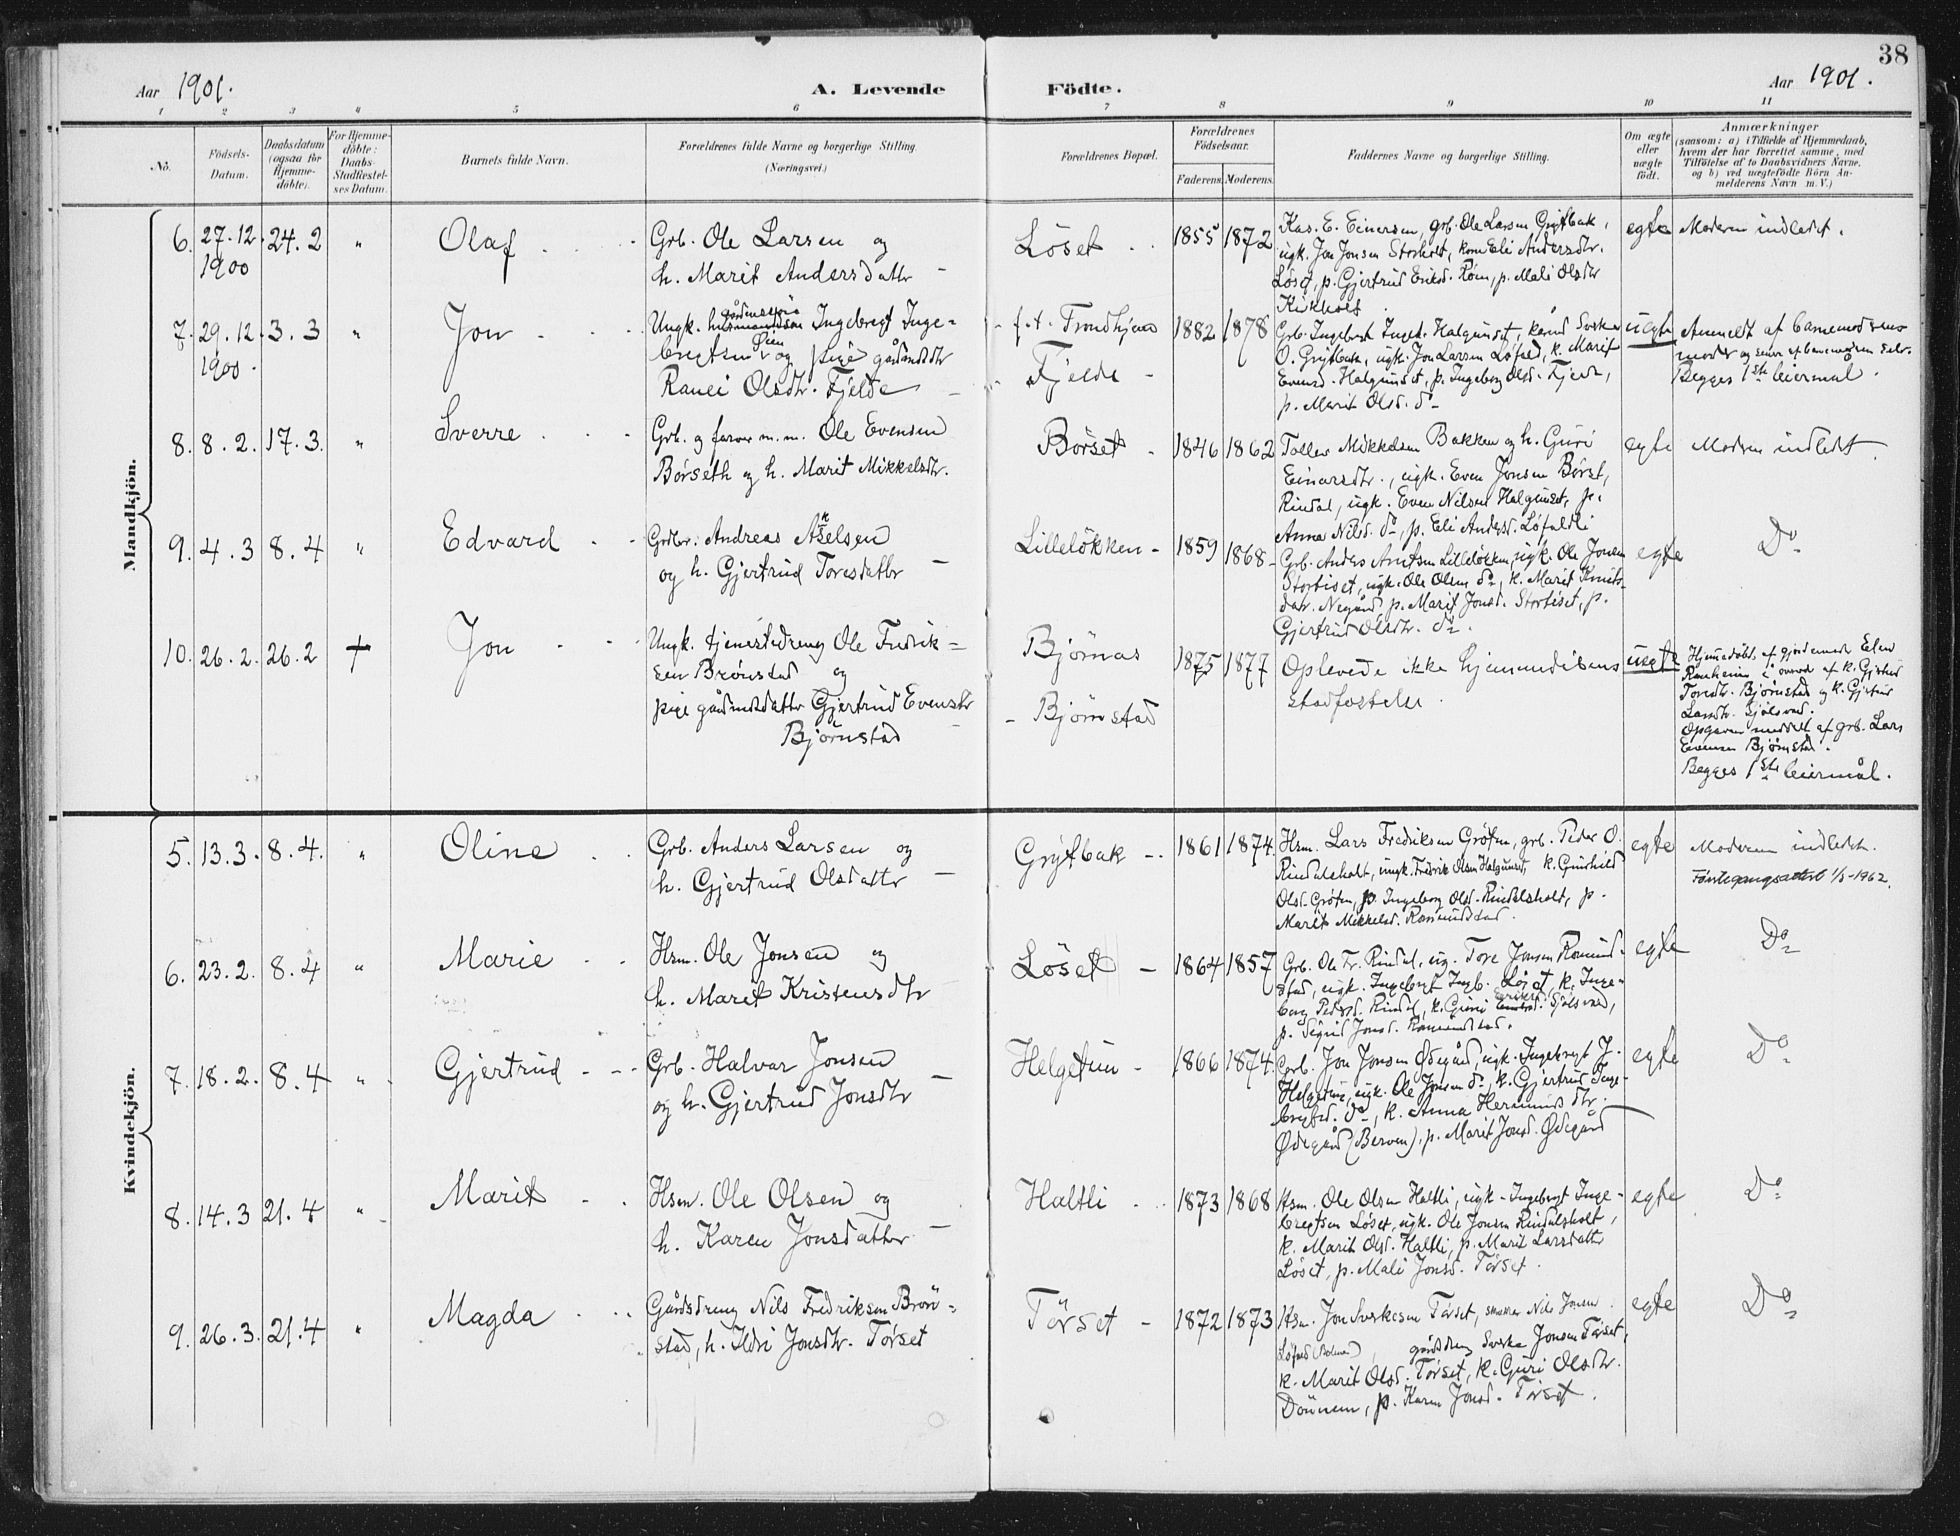 38
Aar 1901.
A. Levende Födte.
Aar 1901.
1 2 3 4 5 6 7 8 9 10 11
No.
Födsels-
Datum.
Daabsdatum
(ogsaa for
Hjemme-
döbte).
For Hjemme-
döbte:
Daabs-
Stadfæstel-
ses Datum.
Barnets fulde Navn.
Forældrenes fulde Navne og borgerlige Stilling.
(Næringsvei.)
Forældrenes Bopæl.
Forældrenes
Födselsaar.
Faderens. Moderens.
Faddernes Navne og borgerlige Stilling.
Om ægte
eller
uægte
født.
Anmærkninger
(saasom: a) i Tilfælde af Hjemmedaab,
hvem der har forrettet samme, med
Tilføielse af to Daabsvidners Navne,
og b) ved uægtefödte Börn An-
melderens Navn m. V.)
Mandkjön.
6. 27.12. 24.2 " Olaf
1900
Grb. Ole Larsen og
h. Marit Andersdattr
Løset
1855 1872
Kas. E. Einersen, grb. Ole Larsen Grytbak,
ugk. Jon Jonsen Storholt, kone Eli Andersdtr.
Løset, p. Gjertrud Eriksd. Röen, p. Mali Olsdtr
Kirkholt
egte
Moderen indledet.
7. 29.12. 3.3 Jon
1900.
Ungk. Ingebrigt Inge-
brigtsen og pige gårdmdtr
Ranei Olsdtr. Fjelde
f.t. Trondhjem
Fjelde
1882 1878
Grb. Ingebrigt Ingeb. Halgunset,
O. Grytbak, ugk. Jon Larsen Løfald, k. Marit
Evensd. Halgunset, p. Ingeborg Olsd. Fjelde,
p. Marit Olsd. do
uegte
Anmeldt af barnemoderens
moder og senere af barnemoderen selv.
Begges 1ste leiermål.
8. 8.2. 17.3. " Sverre
Grb. og farver m.m. Ole Evensen
Børseth og h. Marit Mikkelsdtr.
Børset
1846 1862
Toller Mikkelsen Bakken og h. Guri
Einarsdtr., ugk. Even Jonsen Börset,
Rindal, ugk. Even Nilsen Halgunset, p.
Anna Nilsd. do, p. Eli Andersd. Løfaldli
egte
Moderen indledt
9. 4.3 8.4 " Edvard
Grdbr. Andreas Akselsen
og h. Gjertrud Toresdattr
Lilleløkken
1859 1868
Grb. Anders Arntsen Lilleløkken, ugk. Ole Jonsen
Stortiset, ugk. Ole Olsen do, k. Marit Knuts-
datr. Negård, p. Marit Jonsd. Stortiset, p.
Gjertrud Olsdtr. do.
egte
Do
10. 26.2. 26.2 + Jon
Ungk. tjenestedreng Ole Fredrik-
sen Brønstad og
pige gårdmdsdattr Gjertrud Evensdtr
Bjørnstad
Bjørnas
Bjørnstad
1875 1877
Oplevede ikke hjemmedåbens
stadfæstelse
uegte
Hjemmedøbt af gjordemoder Elen
i overv. af k. Gjertrud
Toresdtr. Bjørnstad og k. Gjertrud
Larsdtr. Sjølsvold.
Opgaven meddelt af grb. Lars
Evensen Bjørnstad.
Begges 1ste leiermål.
Kvindekjön.
5. 13.3. 8.4. " Oline
Grb. Anders Larsen og
h. Gjertrud Olsdattr
Grytbak
1861 1874.
Hsm. Lars Fredriksen Grøten, grb. Peder O.
Rindalsholt, ungk. Fredrik Olsen Halgunset, k. Gunhild
Olsd. Grøten, p. Ingeborg Olsd. Rindalsholt, p.
Marit Mikkelsd. Romundstad.
egte
Moderen indledet.
Førstegangsattest 1/3-1962.
6. 23.2. 8.4 " Marie
Hsm. Ole Jonsen og
h. Marit Kristensdtr
Løset
1864 1857
Grb. Ole Tr. Rindal, ug. Tore Jonsen Romund-
stad, ugk. Ingebrigt Ingb. Løset, k. Inge-
borg Pedersd. Rindal, k. Guri Eriksd. Sjølsvold,
p. Sigrid Jonsd. Romundstad.
egte
Do
7. 18.2. 8.4 " Gjertrud
Grb. Halvar Jonsen
og h. Gjertrud Jonsdtr
Helgetun
1866 1874.
Grb. Jon Jonsen Ødegård, ugk. Ingebrigt J.
Helgetun, ugk. Ole Jonsen do, k. Gjertrud Inge-
brigtsd. do, k. Anna Hermunds dtr.
Ødegård (Berven), p. Marit Jonsd. Ødegård
egte
Do
8. 14.3 21.4 " Marit
Hsm. Ole Olsen og
h. Karen Jonsdattr.
Haltli
1873 1868
Hsm. Ole Olsen Haltli, ugk. Ingebrigt Inge-
brigtsen Løset, ugk. Ole Jonsen Rindalsholt,
k. Marit Olsd. Haltli, p. Marit Larsdattr
Løset, p. Mali Jonsd. Tørset.
egte
Do
9. 26.3. 21.4 " Magda
Gårdsdreng Nils Fredriksen Brøn-
stad, h. Ildri Jonsdtr. Tørset
Tørset
1872 1873
Hsm. Jon Sverkesen Tørset, Nils Jonsen
Løfald, gårdsdreng Sverke Jonsen Tørset,
k. Marit Olsd. Tørset, k. Guri Olsdtr.
Dønnem, p. Karen Jonsd. Tørset.
egte
Do